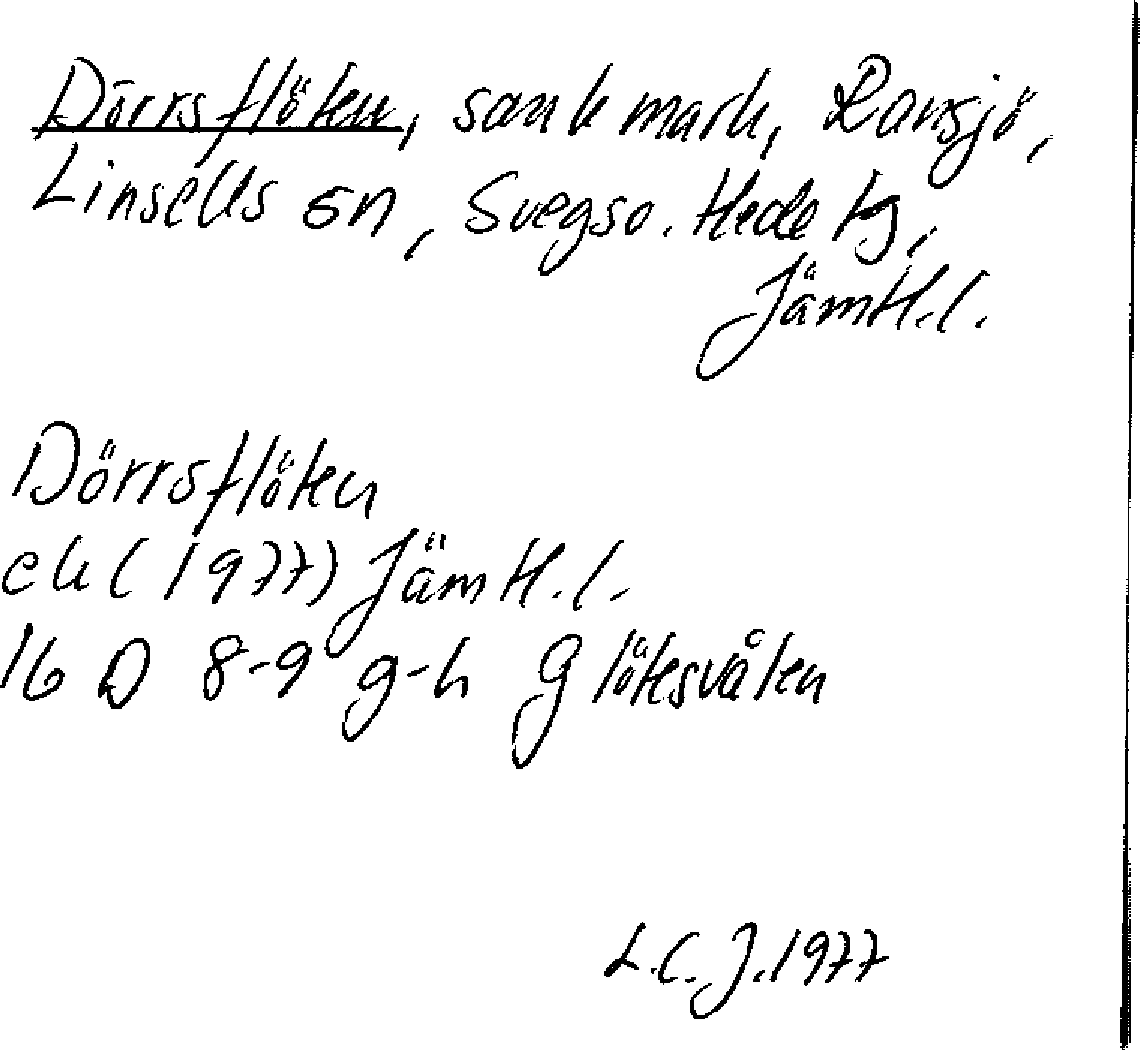 Dörrsflöten, sank mark, Ransjö,
Linsells sn, Svegs o. Hede tg,
Jämtl.l.
Dörrsflöten
ek (1977) Jämtl.l.
16 D 8-9 g-h Glötesvålen
L.C.J. 1977